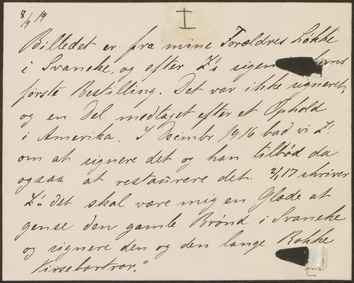 8/9 19
I
Billedet er fra mine Forældres
i Svaneke, og efter Z's egen
første Bestilling. Det var ikke signeret,
og en Del medtaget efter et Ophold
i Amerika. I Decembr 1916 bad vi Z.
om at signere det og han tilbød da
ogsaa at restaurere det. 3/1 17 skriver
Z. "det skal være mig en Glæde at
gense den gamle Brønd i Svaneke
og signere den og den lange Række
Kirsebærtræer."